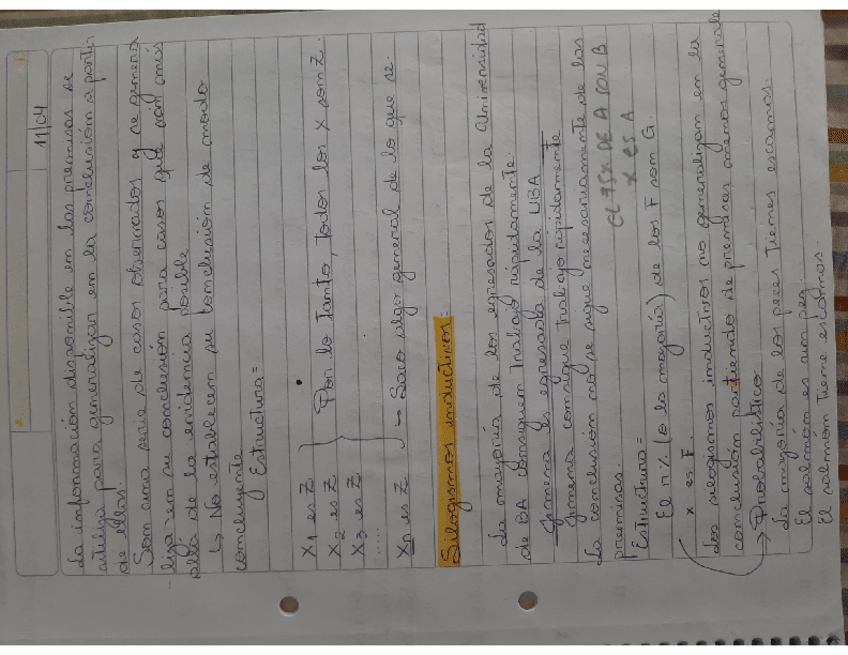 11/04
La información disponible en las premisas se
utiliza para generalizar en la conclusión a partir
de ellas.
Son una serie de casos observados y se genera
liza en su conclusión para casos que van más
allá de la evidencia posible
↳ No establecen su conclusión de modo
concluyente
Estructura =
X1 es Z
X2 es Z
X3 es Z
.....
Xn es Z
Por lo tanto, todos los X son Z.
→ Saco algo general de lo que se.
Silogismos inductivos:
La mayoría de los egresados de la Universidad
de BA consiguen trabajo rápidamente.
Jimena es egresada de la UBA
Jimena consigue trabajo rápidamente
La conclusión no se sigue necesariamente de las
premisas.
EL 75% DE A SON B
X ES A
Estructura =
El n% (o la mayoría) de los F son G.
x es F.
Los silogismos inductivos no generalizan en la
conclusión partiendo de premisas menos generale
→ Probabilístico
La mayoría de los peces tienes escamas.
El salmón es un pez.
El salmón tiene escamas.